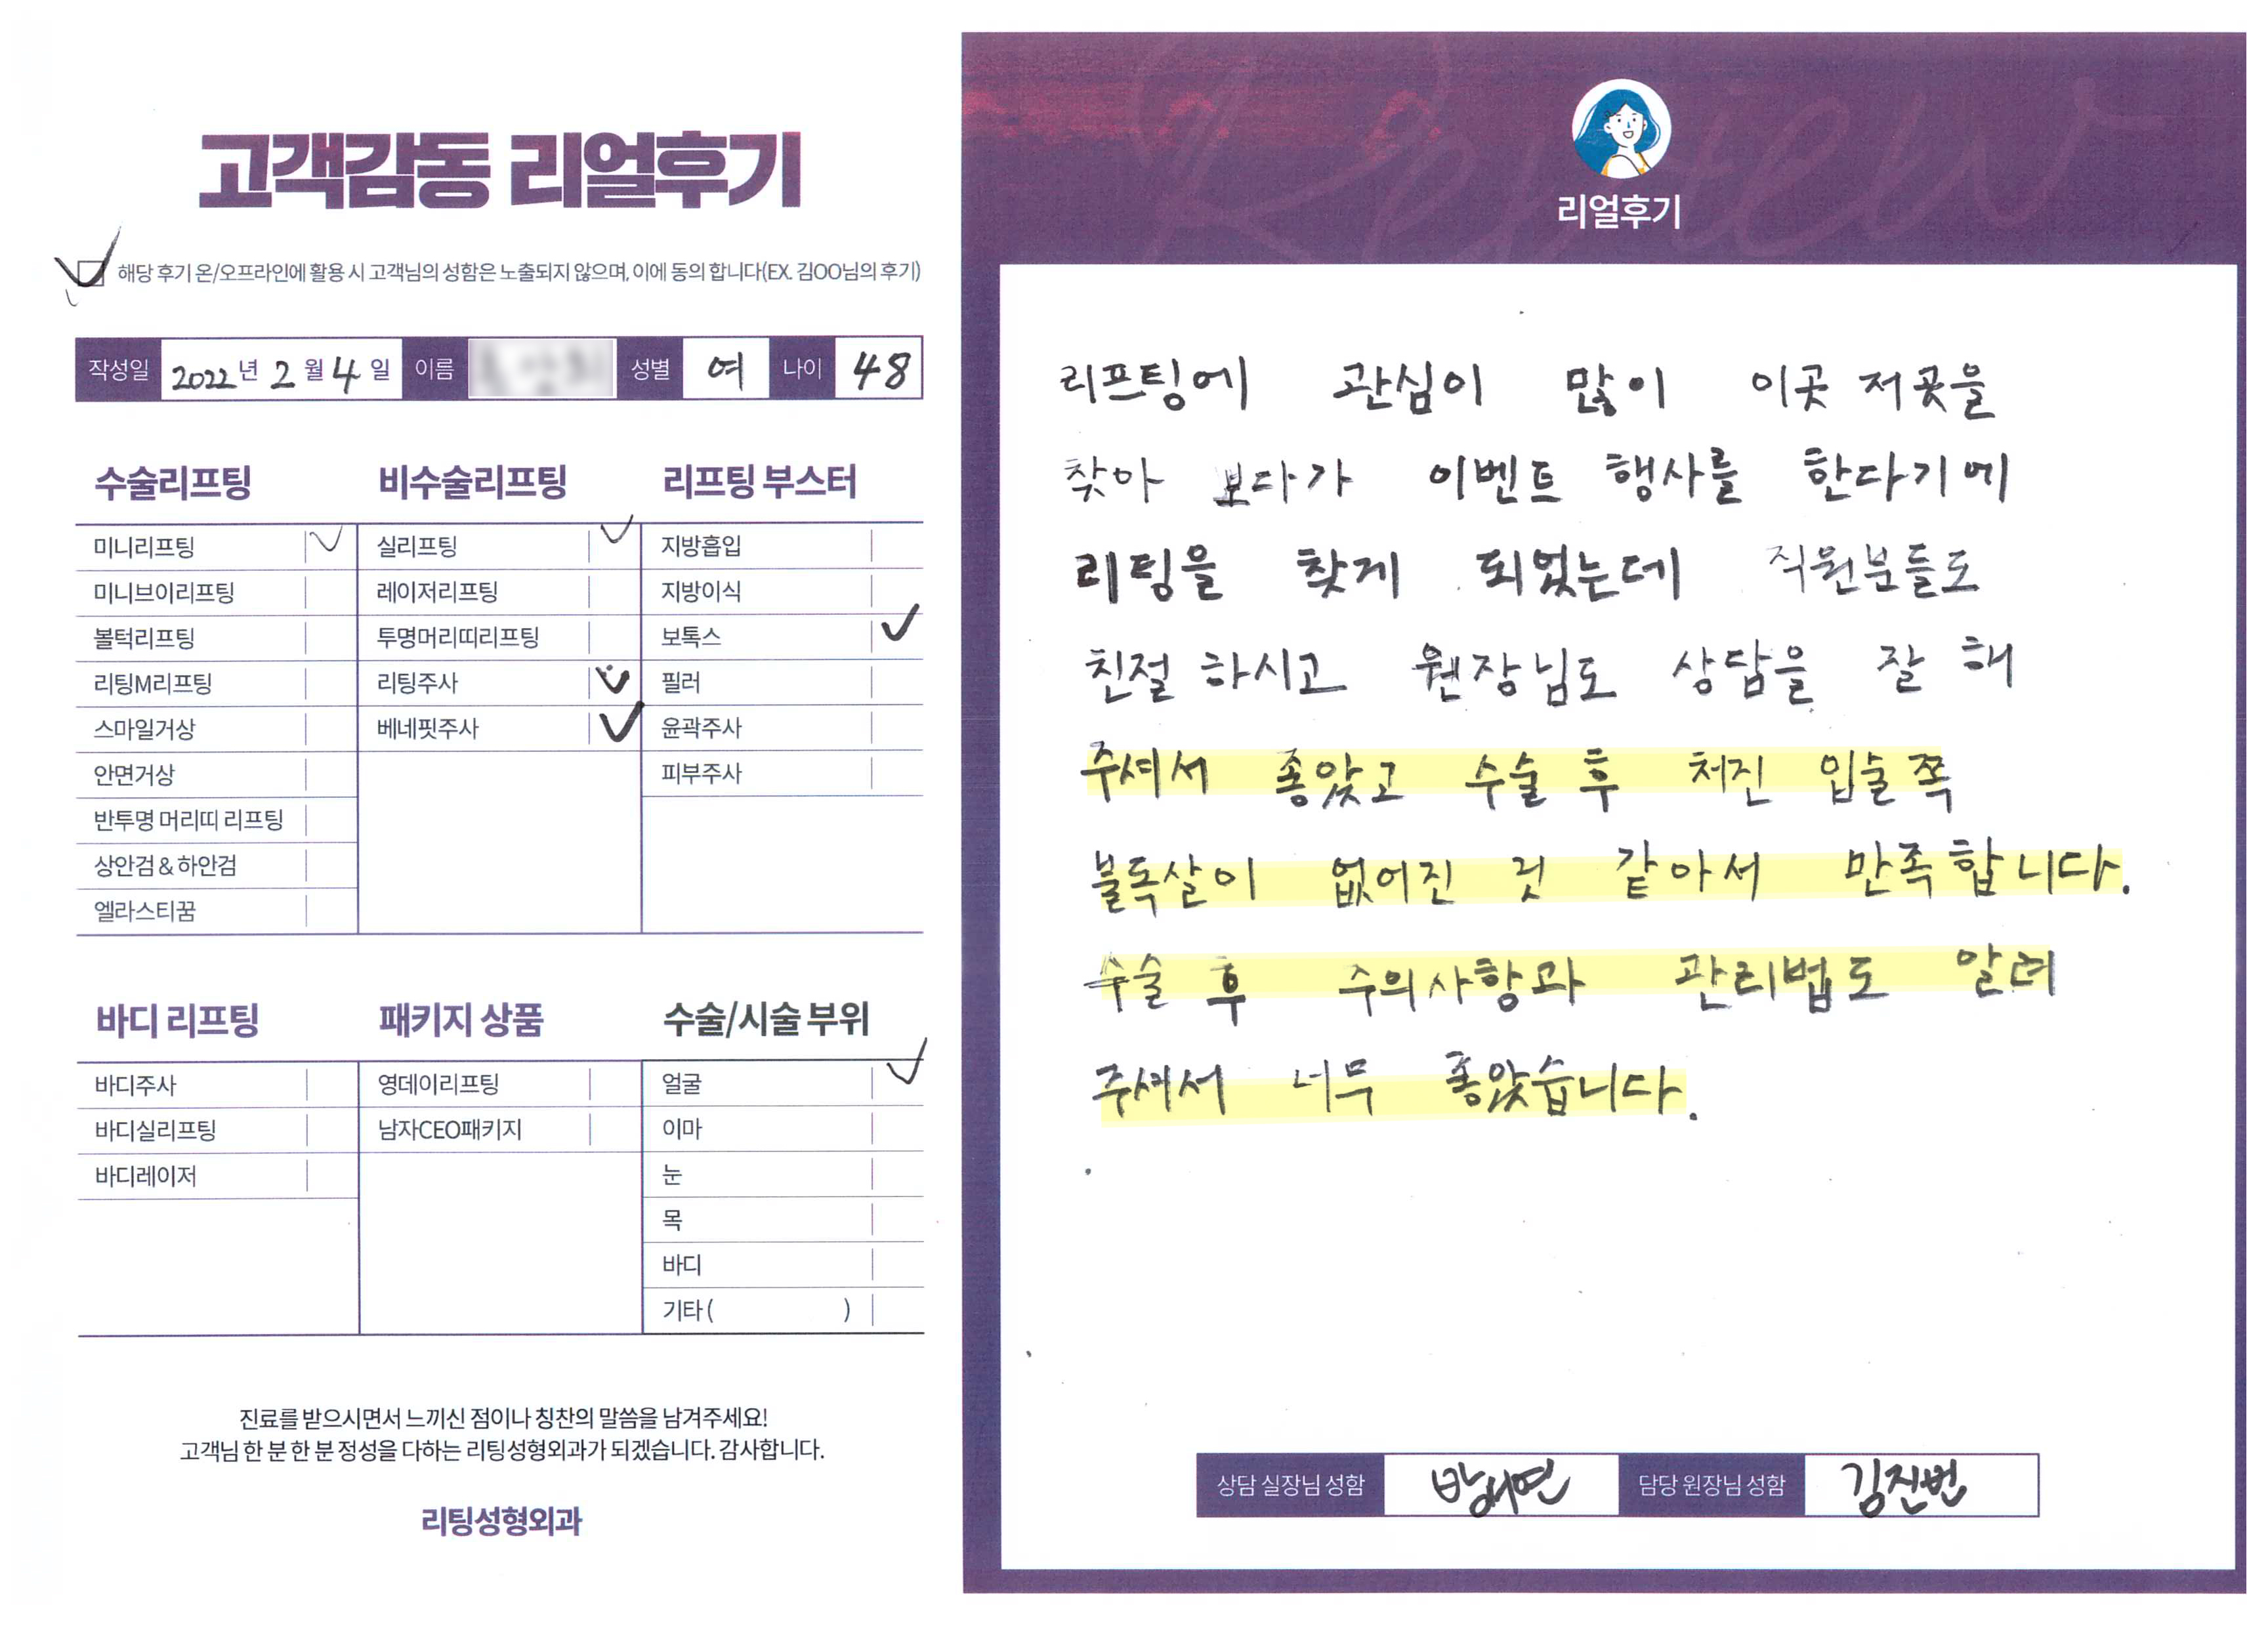 고객감동 리얼후기
해당 후기 온/오프라인에 활용 시 고객님의 성함은 노출되지 않으며, 이에 동의 합니다(EX. 김OO님의 후기)
작성일 2022년 2월 4일 이름 성별 여 나이 48
수술리프팅
미니리프팅
미니브이리프팅
볼턱리프팅
리팅M리프팅
스마일거상
안면거상
반투명 머리띠 리프팅
상안검 & 하안검
엘라스티꿈
비수술리프팅
실리프팅
레이저리프팅
투명머리띠리프팅
리팅주사
베네핏주사
리프팅 부스터
지방흡입
지방이식
보톡스
필러
윤곽주사
피부주사
바디 리프팅
바디주사
바디실리프팅
바디레이저
패키지 상품
영데이리프팅
남자CEO패키지
수술/시술 부위
얼굴
이마
눈
목
바디
기타 ( )
진료를 받으시면서 느끼신 점이나 칭찬의 말씀을 남겨주세요!
고객님 한 분 한 분 정성을 다하는 리팅성형외과가 되겠습니다. 감사합니다.
리팅성형외과
Review
리얼후기
리프팅에 관심이 많이 이곳 저곳을
찾아 보다가 이벤트 행사를 한다기에
리팅을 찾게 되었는데 직원분들도
친절 하시고 원장님도 상담을 잘 해
주셔서 좋았고 수술 후 처진 입술쪽
불독살이 없어진 것 같아서 만족합니다.
수술 후 주의사항과 관리법도 알려
주셔서 너무 좋았습니다.
상담 실장님 성함 담당 원장님 성함 김진번